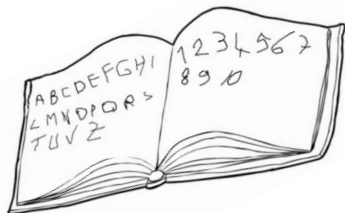 ABCDEFGHI
LMNOPQRS
TUVZ
1234567
8910